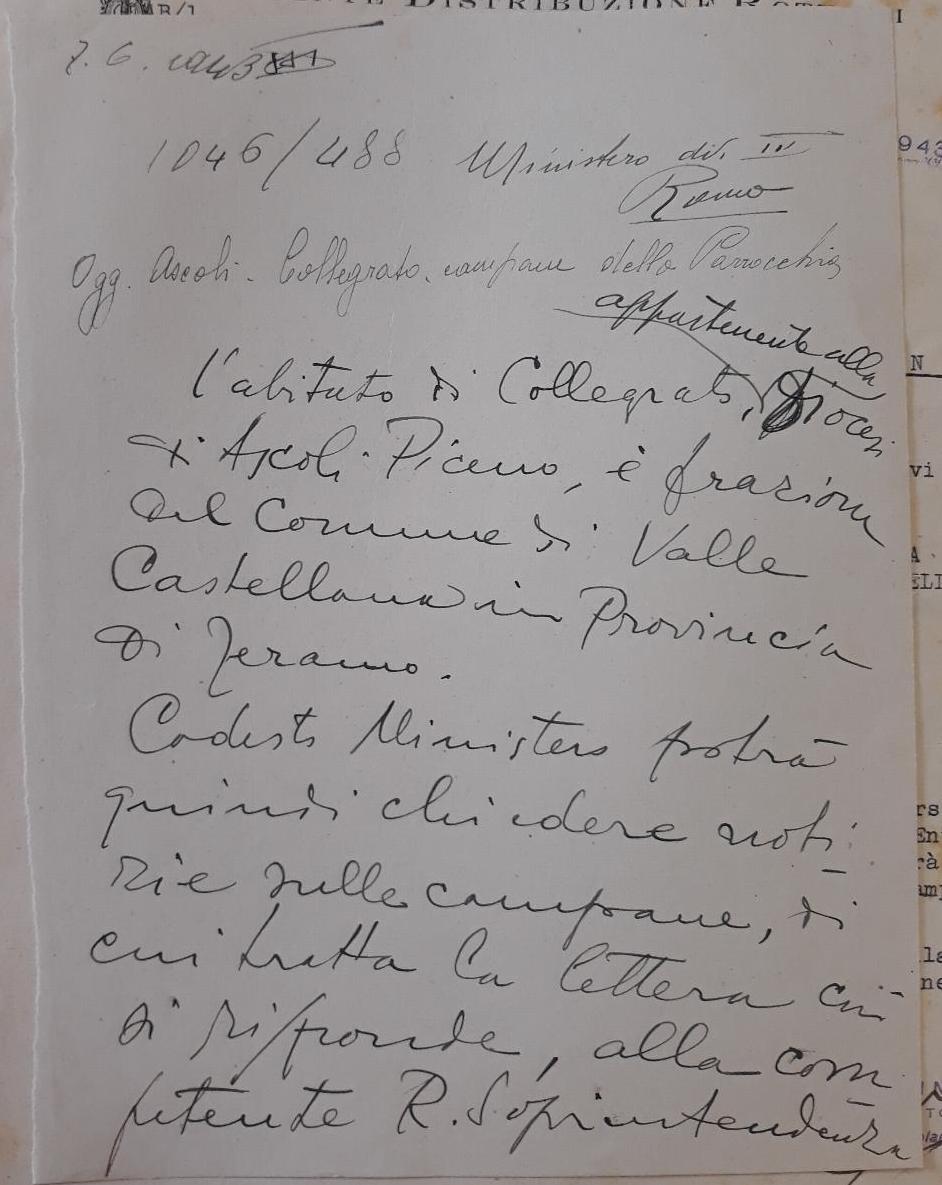 R/1
ENTE DISTRIBUZIONE ROT
7. 6. 1943
1046/488 Ministero div. III
Roma
Ogg. Ascoli - Collegrato. campane della Parrocchia
appartenente alla
L'abitato di Collegrato, Diocesi
di Ascoli Piceno, è frazione
del Comune di Valle
Castellana in Provincia
di Teramo.
Codesto Ministero potrà
quindi chiedere noti-
zie sulle campane, di
cui tratta la lettera cui
si risponde, alla com-
petente R. Soprintendenza
943
N
vi
A
ELI
rs
En
rà
amp
la
ne